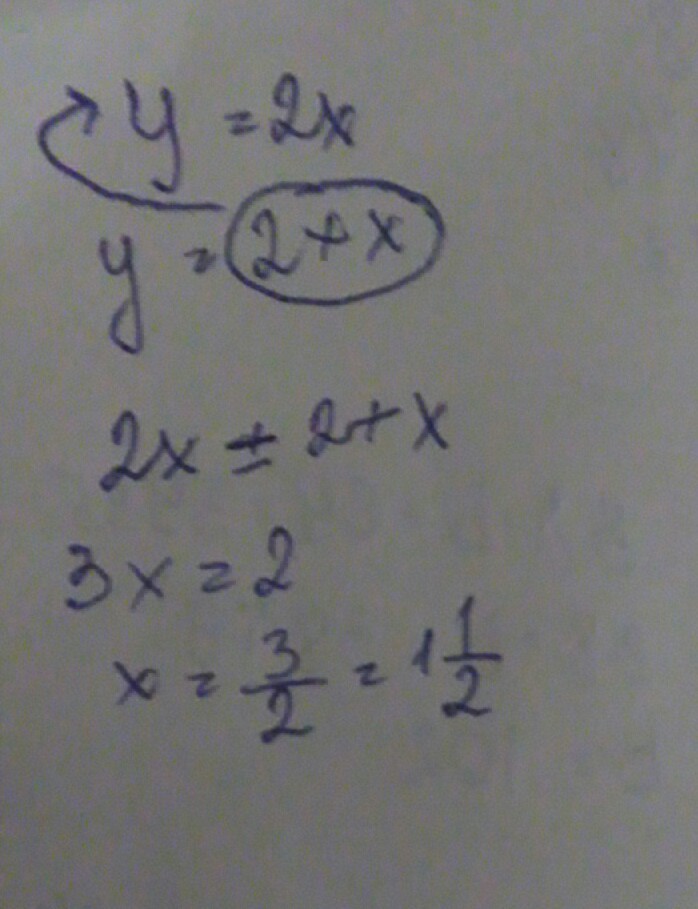 y = 2x
y = 2 + x
2x ± 2 + x
3x = 2
x = 3/2 = 1 1/2